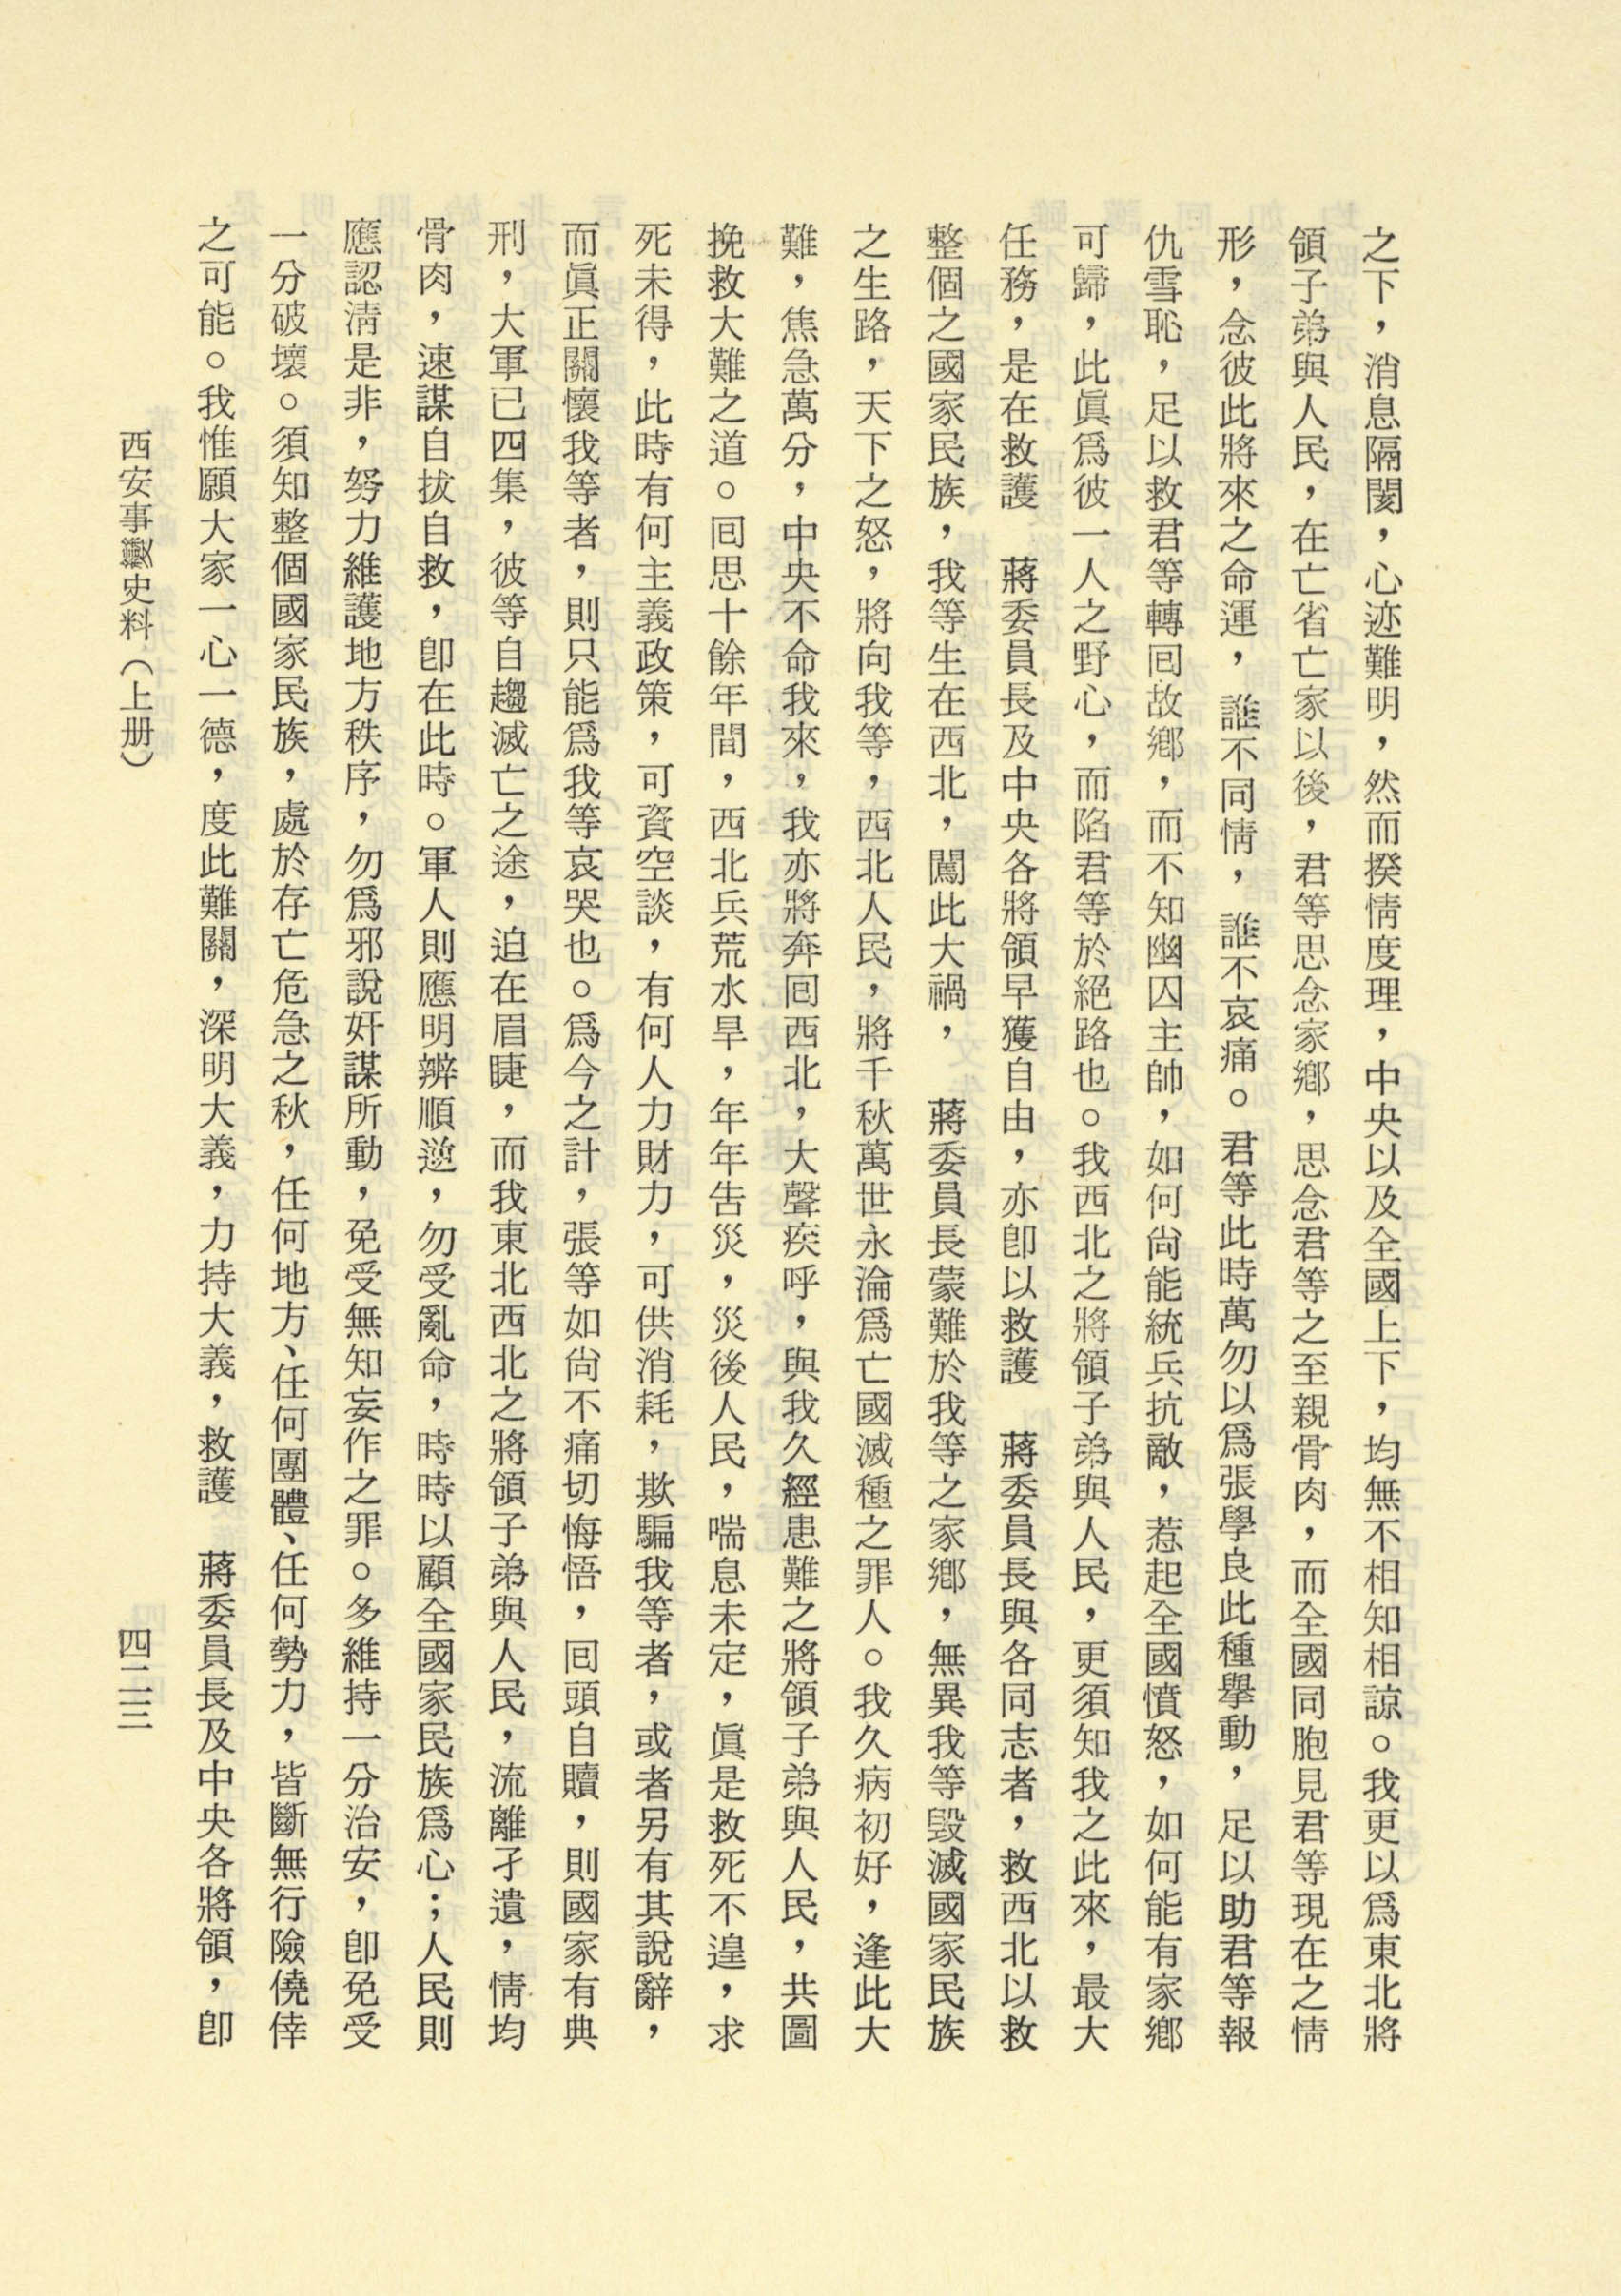 之下，消息隔閡，心迹難明，然而揆情度理，中央以及全國上下，均無不相知相諒。我更以爲東北將
領子弟與人民，在亡省亡家以後，君等思念家鄉，思念君等之至親骨肉，而全國同胞見君等現在之情
形，念彼此將來之命運，誰不同情，誰不哀痛。君等此時萬勿以爲張學良此種舉動，足以助君等報
仇雪恥，足以救君等轉囘故鄉，而不知幽囚主帥，如何尙能統兵抗敵，惹起全國憤怒，如何能有家鄉
可歸，此眞爲彼一人之野心，而陷君等於絕路也。我西北之將領子弟與人民，更須知我之此來，最大
任務，是在救護　蔣委員長及中央各將領早獲自由，亦卽以救護　蔣委員長與各同志者，救西北以救
整個之國家民族，我等生在西北，闖此大禍，　蔣委員長蒙難於我等之家鄉，無異我等毀滅國家民族
之生路，天下之怒，將向我等，西北人民，將千秋萬世永淪爲亡國滅種之罪人。我久病初好，逢此大
難，焦急萬分，中央不命我來，我亦將奔囘西北，大聲疾呼，與我久經患難之將領子弟與人民，共圖
挽救大難之道。囘思十餘年間，西北兵荒水旱，年年吿災，災後人民，喘息未定，眞是救死不遑，求
死未得，此時有何主義政策，可資空談，有何人力財力，可供消耗，欺騙我等者，或者另有其說辭，
而眞正關懷我等者，則只能爲我等哀哭也。爲今之計，張等如尙不痛切悔悟，囘頭自贖，則國家有典
刑，大軍已四集，彼等自趨滅亡之途，迫在眉睫，而我東北西北之將領子弟與人民，流離孑遺，情均
骨肉，速謀自拔自救，卽在此時。軍人則應明辨順逆，勿受亂命，時時以顧全國家民族爲心；人民則
應認淸是非，努力維護地方秩序，勿爲邪說奸謀所動，免受無知妄作之罪。多維持一分治安，卽免受
一分破壞。須知整個國家民族，處於存亡危急之秋，任何地方、任何團體、任何勢力，皆斷無行險僥倖
之可能。我惟願大家一心一德，度此難關，深明大義，力持大義，救護　蔣委員長及中央各將領，卽
西安事變史料（上册）
四二三